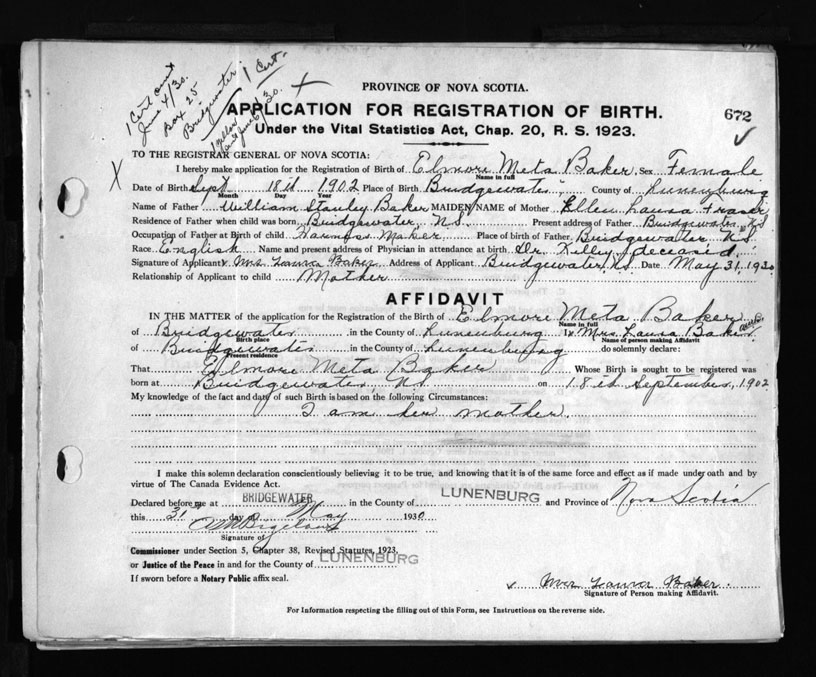 1 Cert out
June 4/30.
Box 25
Bridgewater.
1 Cert.
June 6/30.
PROVINCE OF NOVA SCOTIA.
APPLICATION FOR REGISTRATION OF BIRTH.
672
Under the Vital Statistics Act, Chap. 20, R. S. 1923.
TO THE REGISTRAR GENERAL OF NOVA SCOTIA:
I hereby make application for the Registration of Birth of Elmore Meta Baker Sex Female
Name in full
Date of Birth Sept 18th 1902 Place of Birth Bridgewater County of Lunenburg
Month Day Year
Name of Father William Stanley Baker MAIDEN NAME of Mother Ellen Laura Fraser
Residence of Father when child was born Bridgewater, NS. Present address of Father Bridgewater, NS
Occupation of Father at Birth of child Harness Maker Place of birth of Father Bridgewater NS
Race English Name and present address of Physician in attendance at birth Dr deceased.
Signature of Applicant x Mrs. Laura Baker Address of Applicant Bridgewater, NS Date May 31, 1930
Relationship of Applicant to child Mother
AFFIDAVIT
IN THE MATTER of the application for the Registration of the Birth of Elmore Meta Baker
Name in full
of Bridgewater in the County of Lunenburg I x Mrs. Laura Baker
Birth place Name of person making Affidavit
of Bridgewater in the County of Lunenburg do solemnly declare:
Present residence
That Elmore Meta Baker Whose Birth is sought to be registered was
born at Bridgewater, NS on 18th September, 1902
My knowledge of the fact and date of such Birth is based on the following Circumstances:
I am her mother.
I make this solemn declaration conscientiously believing it to be true, and knowing that it is of the same force and effect as if made under oath and by
virtue of The Canada Evidence Act.
Declared before me at BRIDGEWATER in the County of LUNENBURG and Province of Nova Scotia
this 31 day of May 1930
Signature of
Commissioner under Section 5, Chapter 38, Revised Statutes, 1923,
or Justice of the Peace in and for the County of LUNENBURG
If sworn before a Notary Public affix seal.
x Mrs Laura Baker
Signature of Person making Affidavit.
For Information respecting the filling out of this Form, see Instructions on the reverse side.